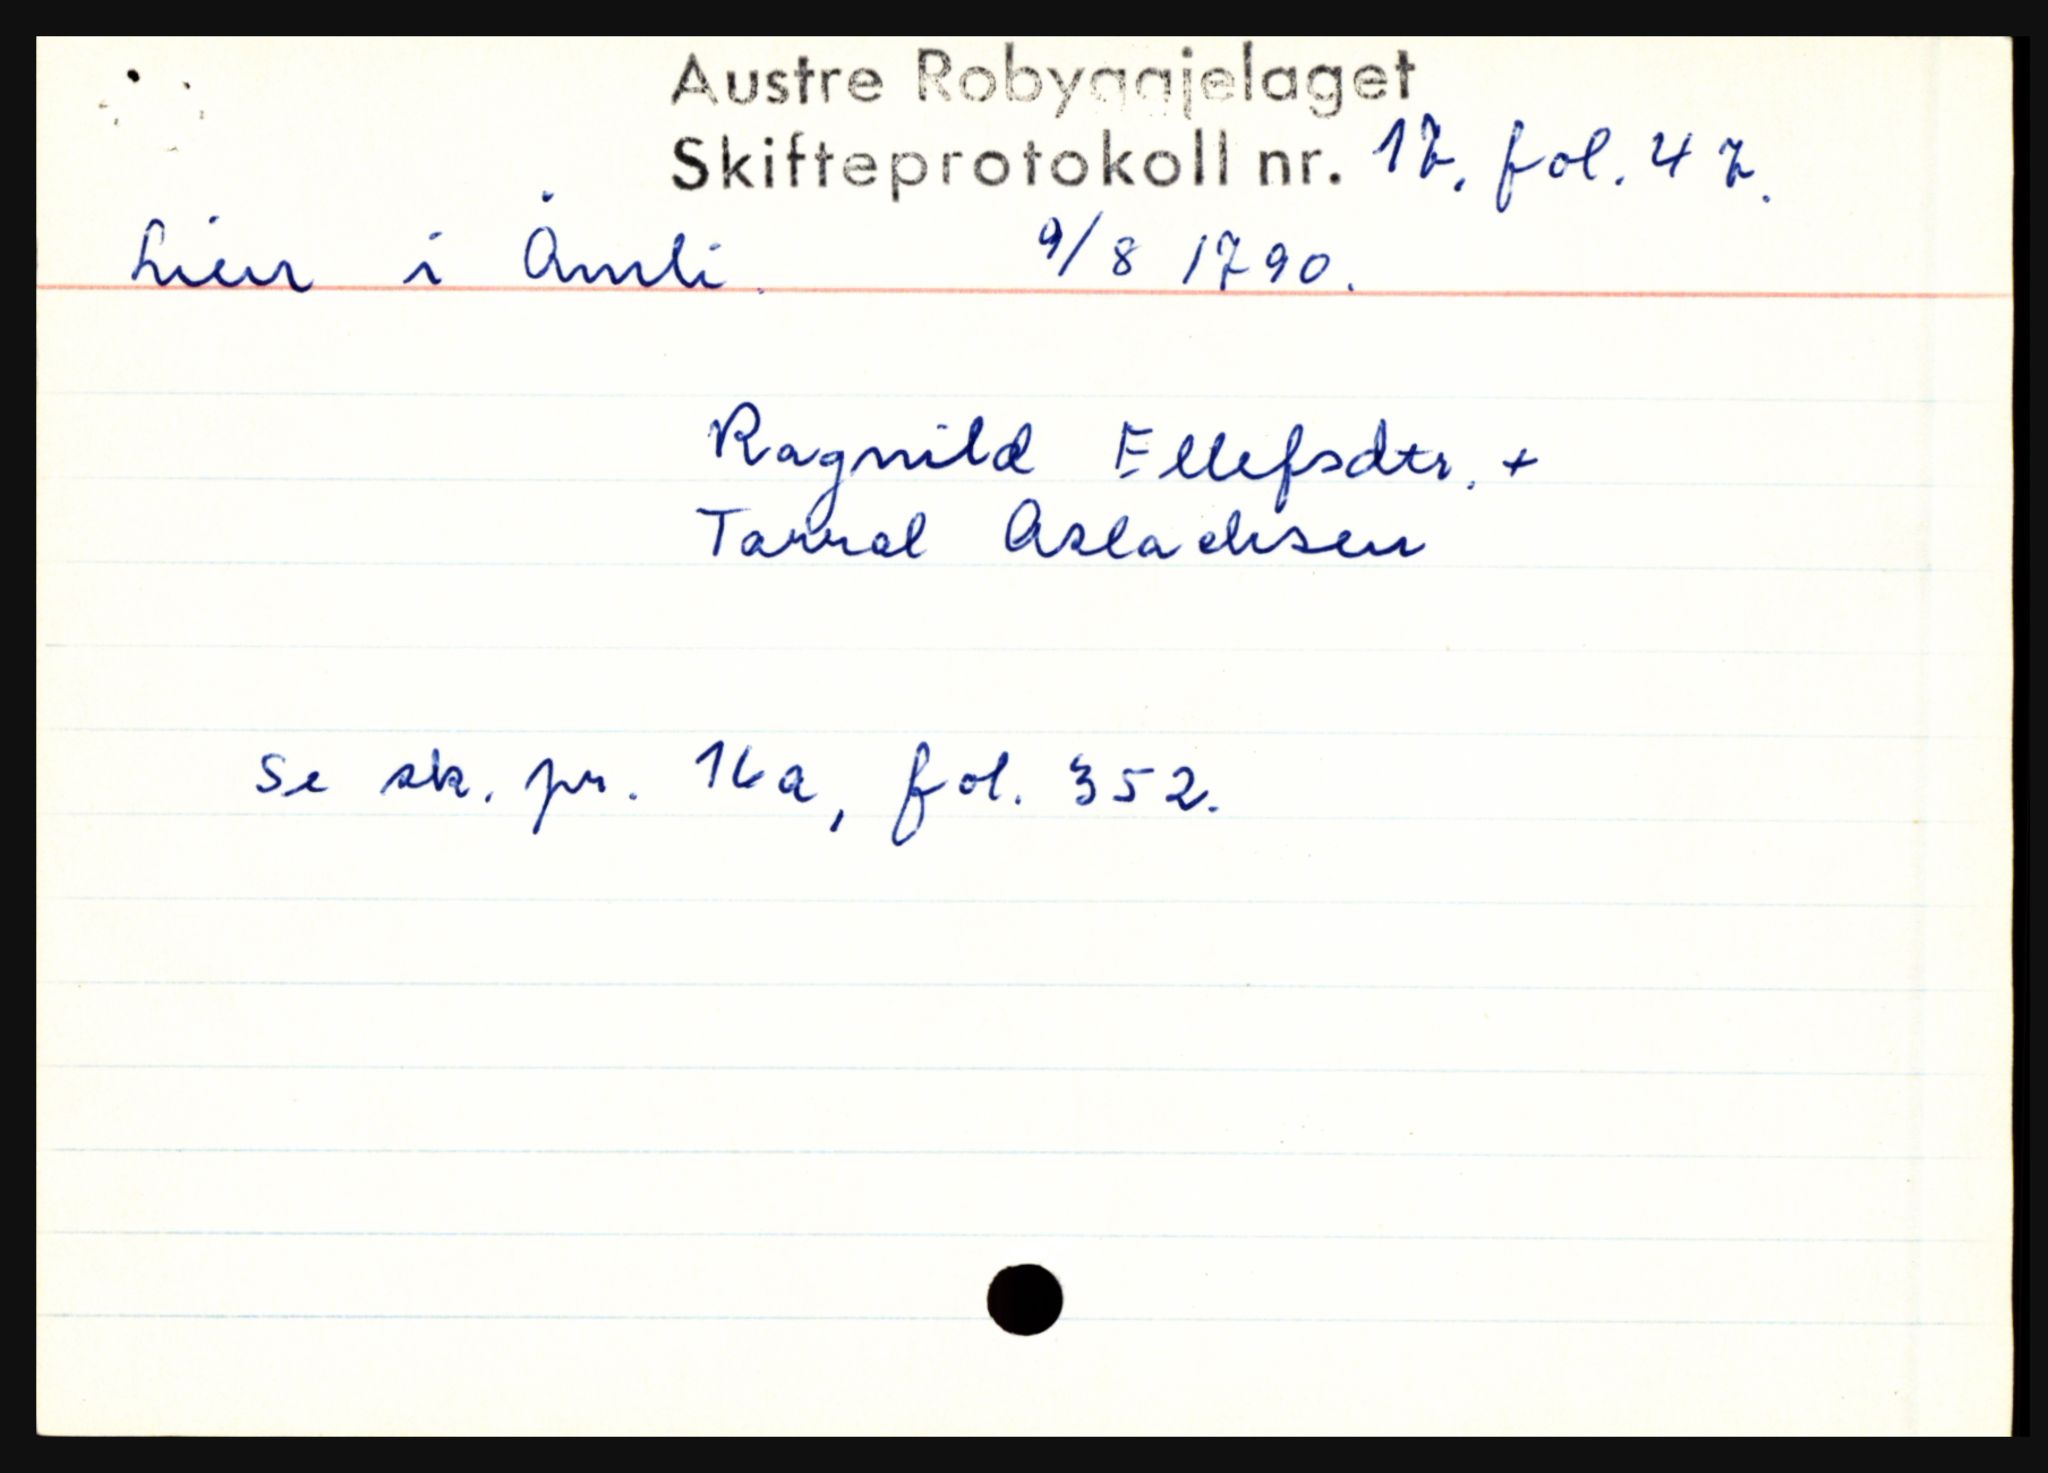 Austre Robyggjelaget
Skifteprotokoll nr. 17. fol. 47.
Lien i Åmli. 9/8 1790.
Ragnild Ellefsdtr. +
Tarral Aslachsen
Se sk. pr. 16a, fol. 352.